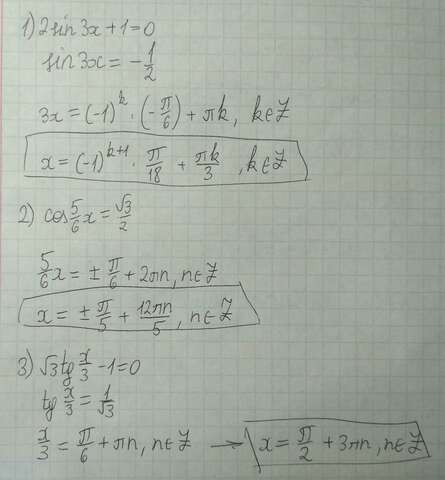 1) 2sin3x+1=0
sin3x = -1/2
3x = (-1)^k · (-π/6) + πk, k∈Z
x = (-1)^(k+1) · π/18 + πk/3, k∈Z
2) cos 5/6 x = √3/2
5/6 x = ± π/6 + 2πn, n∈Z
x = ± π/5 + 12πn/5, n∈Z
3) √3 tg x/3 - 1 = 0
tg x/3 = 1/√3
x/3 = π/6 + πn, n∈Z → x = π/2 + 3πn, n∈Z